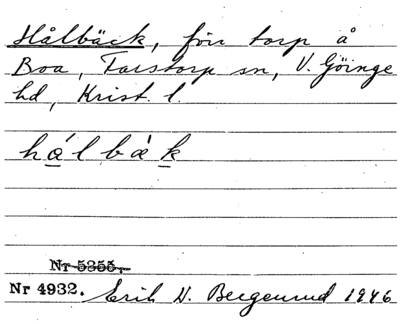 Hålbäck, förr torp å
Boa, Farstorp sn, V. Göinge
hd, Krist. l.
hǻlbæ̀k
Nr 5355.
Nr 4932. Erik H. Bergenrud 1946